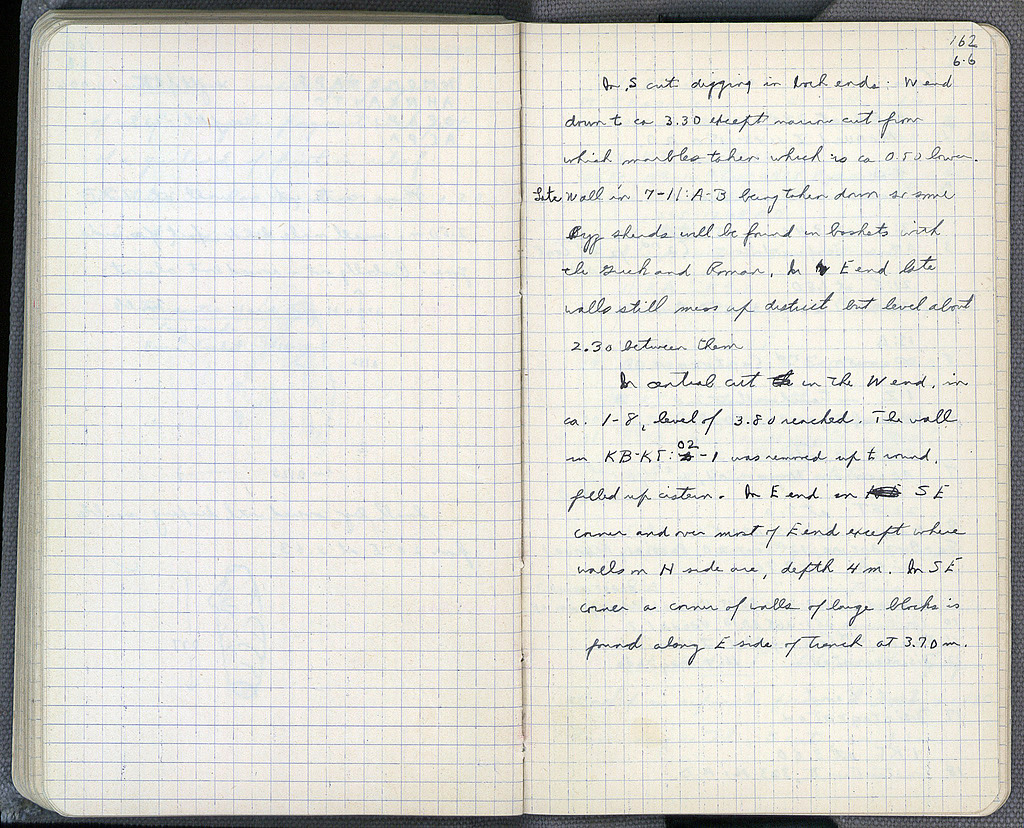 162
6·6
In S cut digging in both ends: W end
down to ca 3.30 except narrow cut from
which marbles taken which is ca 0.50 lower.
Late Wall in 7-11:A-B being taken down so some
Byz sherds will be found in baskets with
the Greek and Roman. In E end late
walls still mess up district but level about
2.30 between them
In central cut in the W end, in
ca. 1-8, level of 3.80 reached. The wall
in KB-KΓ:02-1 was removed up to round,
filled up cistern. In E end in SE
corner and over most of E end except where
walls on N side are, depth 4 m. In SE
corner a corner of walls of large blocks is
found along E side of trench at 3.70 m.